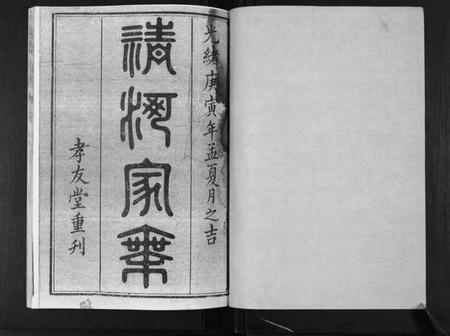 光緒庚寅年孟夏月之吉
清河家乘
孝友堂重刋